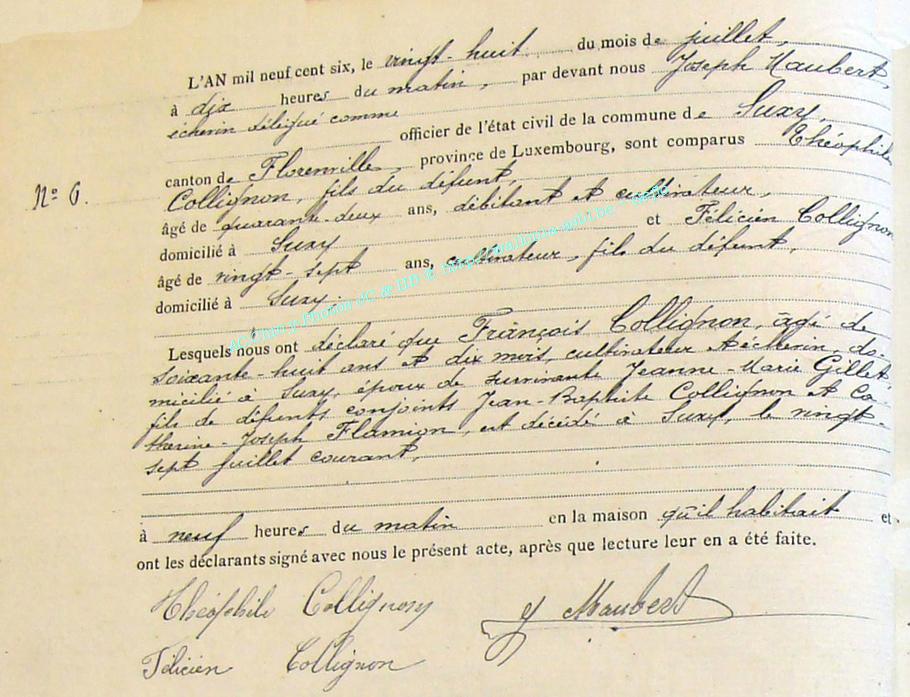 L'AN mil neuf cent six, le vingt-huit du mois de juillet,
à dix heures du matin, par devant nous Joseph Maubert,
échevin délégué comme officier de l'état civil de la commune de Suxy,
canton de Florenville, province de Luxembourg, sont comparus Théophile
Collignon, fils du défunt,
âgé de quarante-deux ans, débitant et cultivateur,
domicilié à Suxy et Félicien Collignon
âgé de vingt-sept ans, cultivateur, fils du défunt,
domicilié à Suxy.
N° 6.
Lesquels nous ont déclaré que François Collignon, âgé de
soixante-huit ans et dix mois, cultivateur et échevin, do-
micilié à Suxy, époux de survivante Jeanne-Marie Gillet,
fils de défunts conjoints Jean-Baptiste Collignon et Ca-
therine-Joseph Flamion, est décédé à Suxy, le vingt-
sept juillet courant,
à neuf heures du matin en la maison qu'il habitait et
ont les déclarants signé avec nous le présent acte, après que lecture leur en a été faite.
Théophile Collignon J Maubert
Félicien Collignon